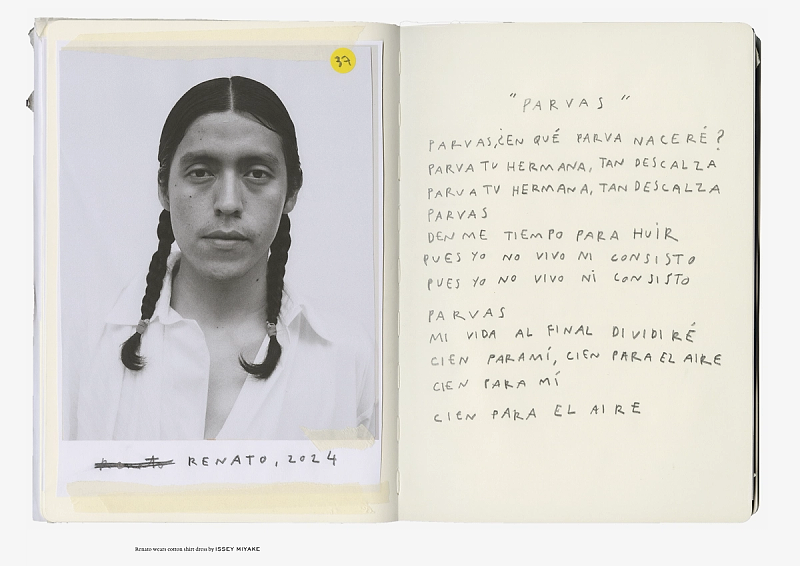 37
RENATO, 2024
Renato wears cotton shirt dress by ISSEY MIYAKE
"PARVAS"
PARVAS,¿EN QUÉ PARVA NACERÉ?
PARVA TU HERMANA, TAN DESCALZA
PARVA TU HERMANA, TAN DESCALZA
PARVAS
DENME TIEMPO PARA HUIR
PUES YO NO VIVO NI CONSISTO
PUES YO NO VIVO NI CONSISTO
PARVAS
MI VIDA AL FINAL DIVIDIRÉ
CIEN PARA MÍ, CIEN PARA EL AIRE
CIEN PARA MÍ
CIEN PARA EL AIRE